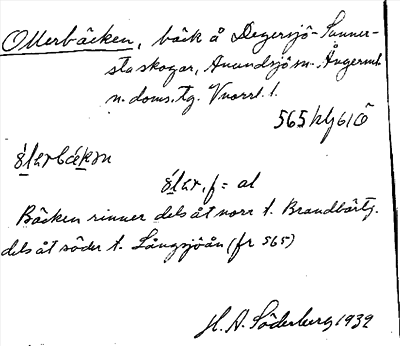 Ollerbäcken, bäck å Degersjö-Sunner-
staskogar, Anundsjö sn. Ångerml.
n. doms. tg. Vnorrl. l.
565
Bäcken rinner dels åt norr t. Brandbärtj.
dels åt söder t. Långsjöån (fr 565)
H. A. Söderberg 1939